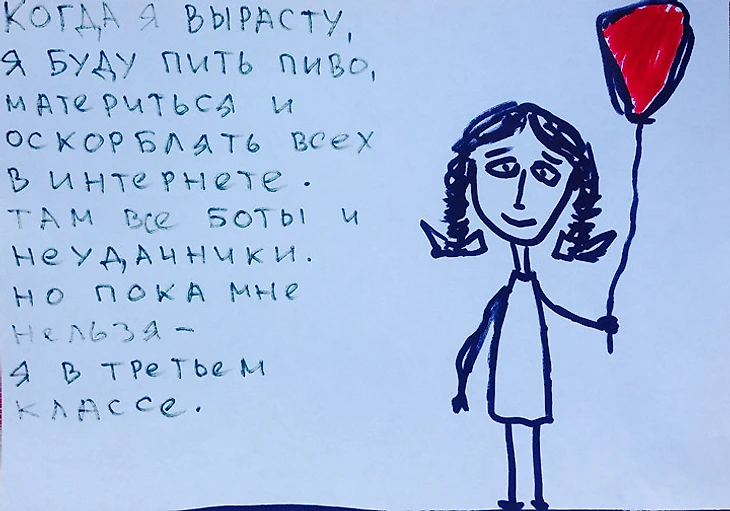 КОГДА Я ВЫРАСТУ,
Я БУДУ ПИТЬ ПИВО,
МАТЕРИТЬСЯ И
ОСКОРБЛЯТЬ ВСЕХ
В ИНТЕРНЕТЕ.
ТАМ ВСЕ БОТЫ И
НЕУДАЧНИКИ.
НО ПОКА МНЕ
НЕЛЬЗЯ-
Я В ТРЕТЬЕМ
КЛАССЕ.